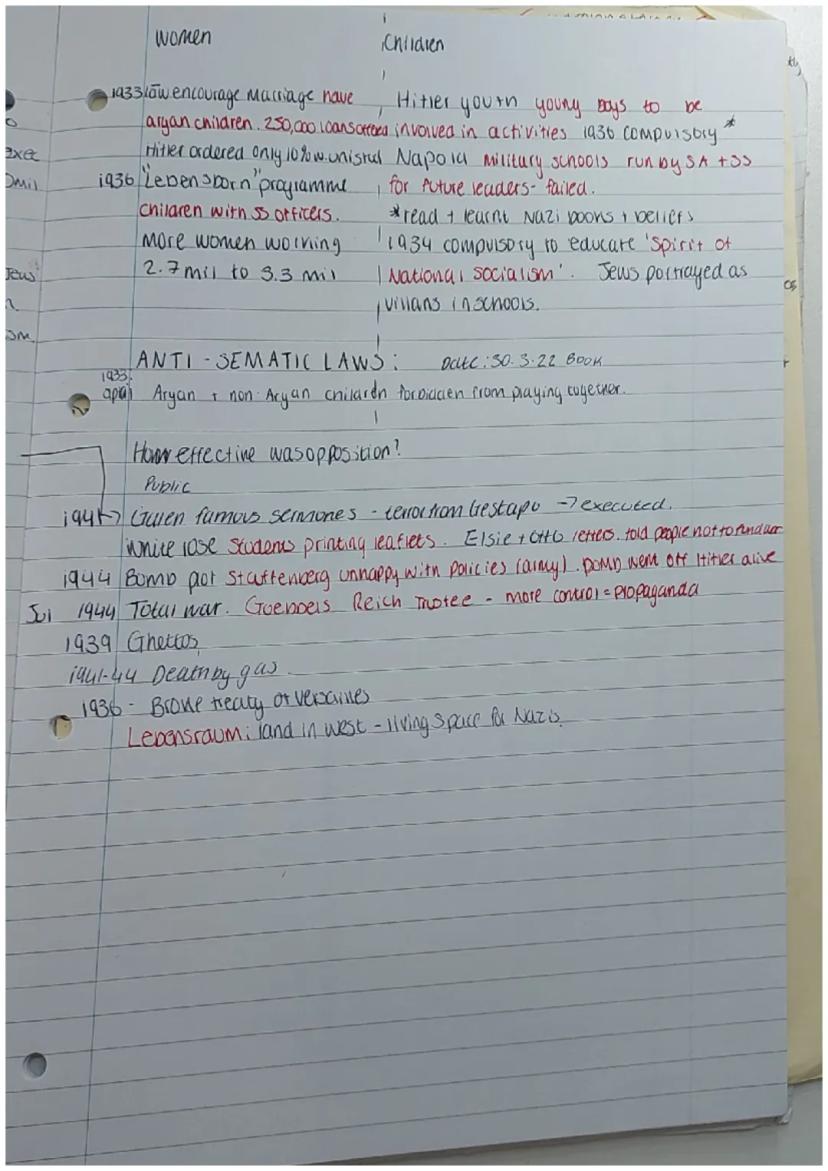 Women
Children
1933 law encourage Marriage have
aryan children. 250,000 loans offered
Hitler ordered only 10% w. uni stud
1936 "Lebensborn" programme
Children with SS officers.
More women working
2.7mil to 3.3 mil
Hitler youth young boys to be
involved in activities 1936 compulsory *
Napola military schools run by SA + SS
for future leaders - failed.
*read + learnt Nazi books + beliefs
1934 compulsory to educate 'Spirit of
National socialism'. Jews portrayed as
villans in schools.
Jews
ANTI - SEMATIC LAWS: Date: 30.3.22 Book
1933
april Aryan + non-Aryan children forbidden from playing together.
How effective was opposition?
Public
1941 Galen famous sermones - terror from Gestapo → executed.
White rose students printing leaflets. Elsie + Otto letters. told people not to
1944 Bomb plot Stauffenberg unnappy with policies (army). bomb went off Hitler alive
Jul 1944 Total war. Goebbels Reich Trustee - more control = propaganda
1939 Ghettos
1941-44 Death by gas
1936 - Broke treaty of versailles
Lebensraum: land in west - living space for Nazis